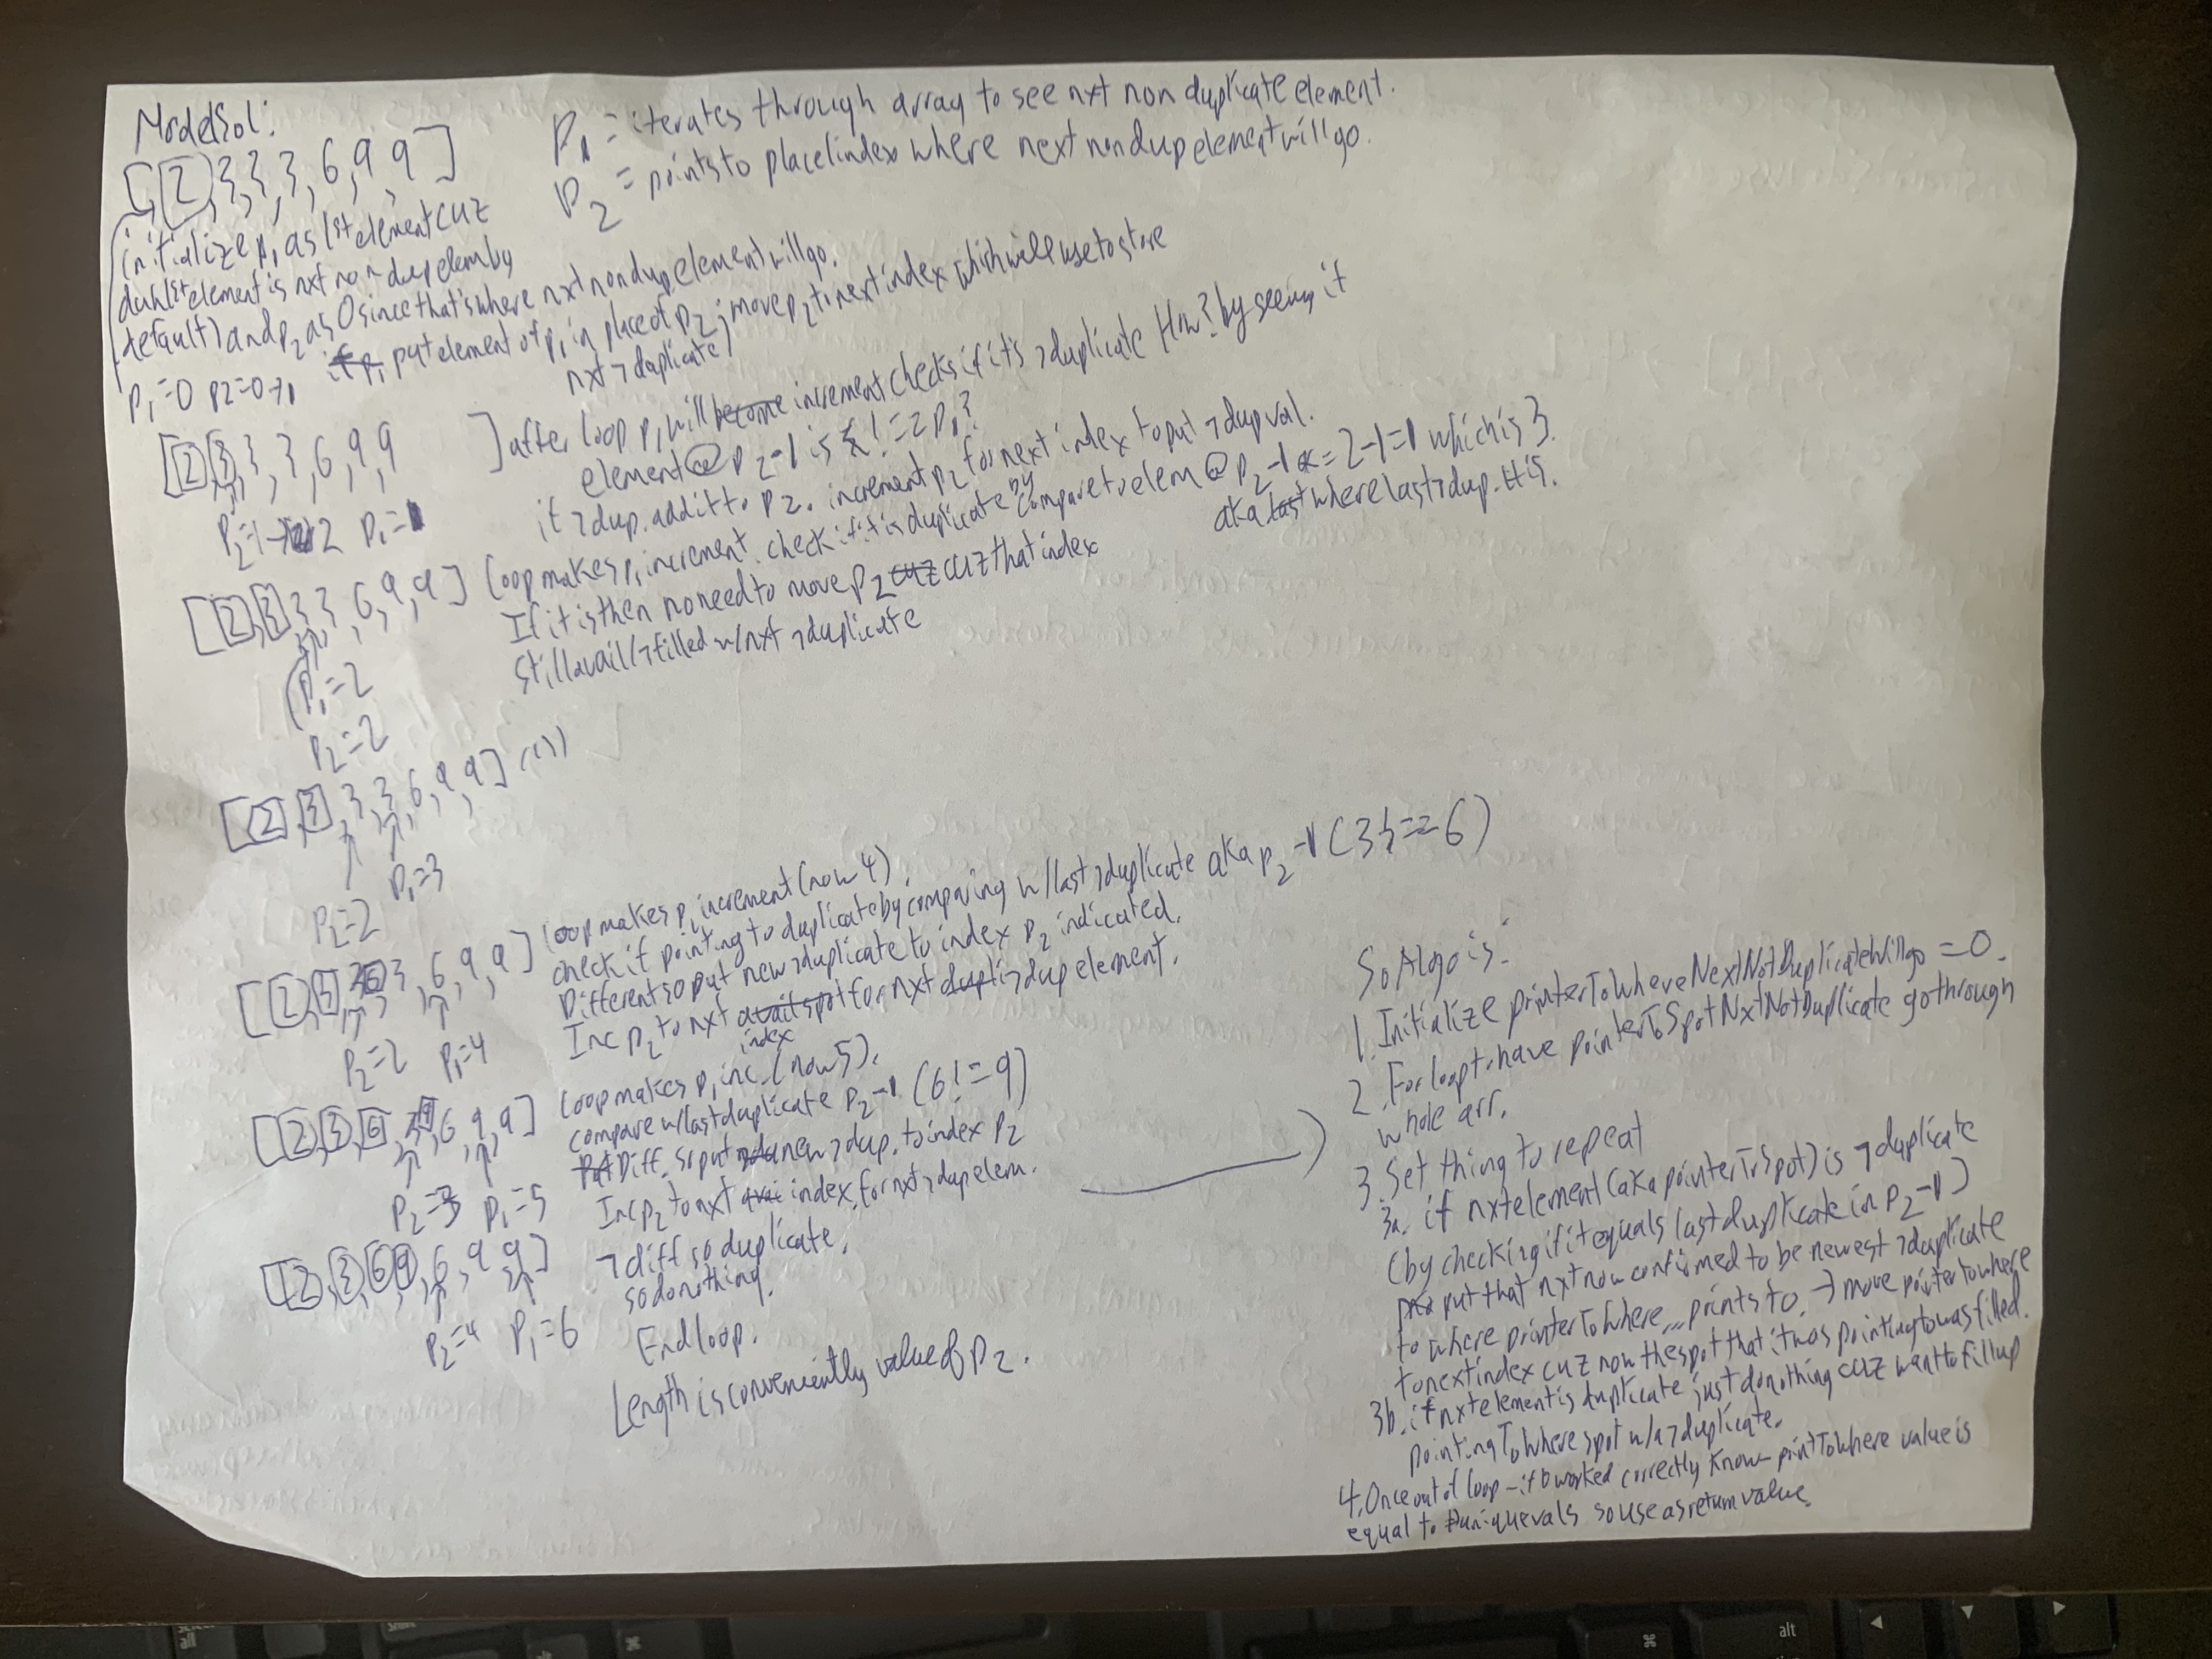 Model Sol:
[[2],3,3,3,6,9,9]
P1 = iterates through array to see nxt non duplicate element.
P2 = points to place/index where next nondup element will go.
initialize p1 as 1st element cuz
duh (1st element is nxt non dup elem by
default) and p2 as 0 since that's where nxt nondup element will go.
put element of p1 in place of p2, move p2 to next index which we'll use to store
nxt ¬duplicate
P1=0 P2=0→1
[[2],[3],3,3,6,9,9]
P2=1→2 P1=1
after loop p1 will become increment checks if it's ¬duplicate How? by seeing if
element @ P2-1 is != P1?
if ¬dup. add it to P2. increment P2 for next index to put ¬dup val.
[[2],[3],3,3,6,9,9] loop makes p1 increment. check if it is duplicate by compare to elem @ P2-1 = 2-1=1 which is 3.
aka last where last ¬dup. # is.
If it is then no need to move P2 cuz cuz that index
still avail/¬filled w/nxt ¬duplicate
P1=2
P2=2
[[2],[3],3,3,6,9,9] (())
P2=2 P1=3
[[2],[3],[6],3,6,9,9] loop makes p1 increment (now 4).
check if pointing to duplicate by comparing w/last ¬duplicate aka P2-1 (3!==6)
Different so put new ¬duplicate to index P2 indicated.
Inc P2 to nxt avail spot index for nxt dupli ¬dup element.
P2=2 P1=4
[[2],[3],[6],[9],6,9,9] loop makes p1 inc. (now 5).
compare w/last duplicate P2-1 (6!=9)
Put Diff. so put new ¬dup. to index P2
Inc P2 to nxt avai index for nxt ¬dup elem.
P2=3 P1=5
[[2],[3],[6],[9],6,9,9] ¬diff so duplicate,
so do nothing.
P2=4 P1=6 End loop.
Length is conveniently value of P2.
So Algo is:
1. Initialize pointerToWhereNextNotDuplicateWillgo = 0.
2. For loop to have pointerToSpotNxtNotDuplicate go through
whole arr.
3. Set thing to repeat
3a. if nxt element (aka pointerToSpot) is ¬duplicate
(by checking if it equals last duplicate in P2-1)
put that nxt now confirmed to be newest ¬duplicate
to where pointerToWhere... points to. → move pointerTowhere
to next index cuz now the spot that it was pointing to was filled.
3b. if nxt element is duplicate just do nothing cuz want to fill up
pointingToWhere spot w/a ¬duplicate.
4. Once out of loop - if b worked correctly know - pointToWhere value is
equal to # unique vals so use as return value.
alt
alt
⌘
⌘